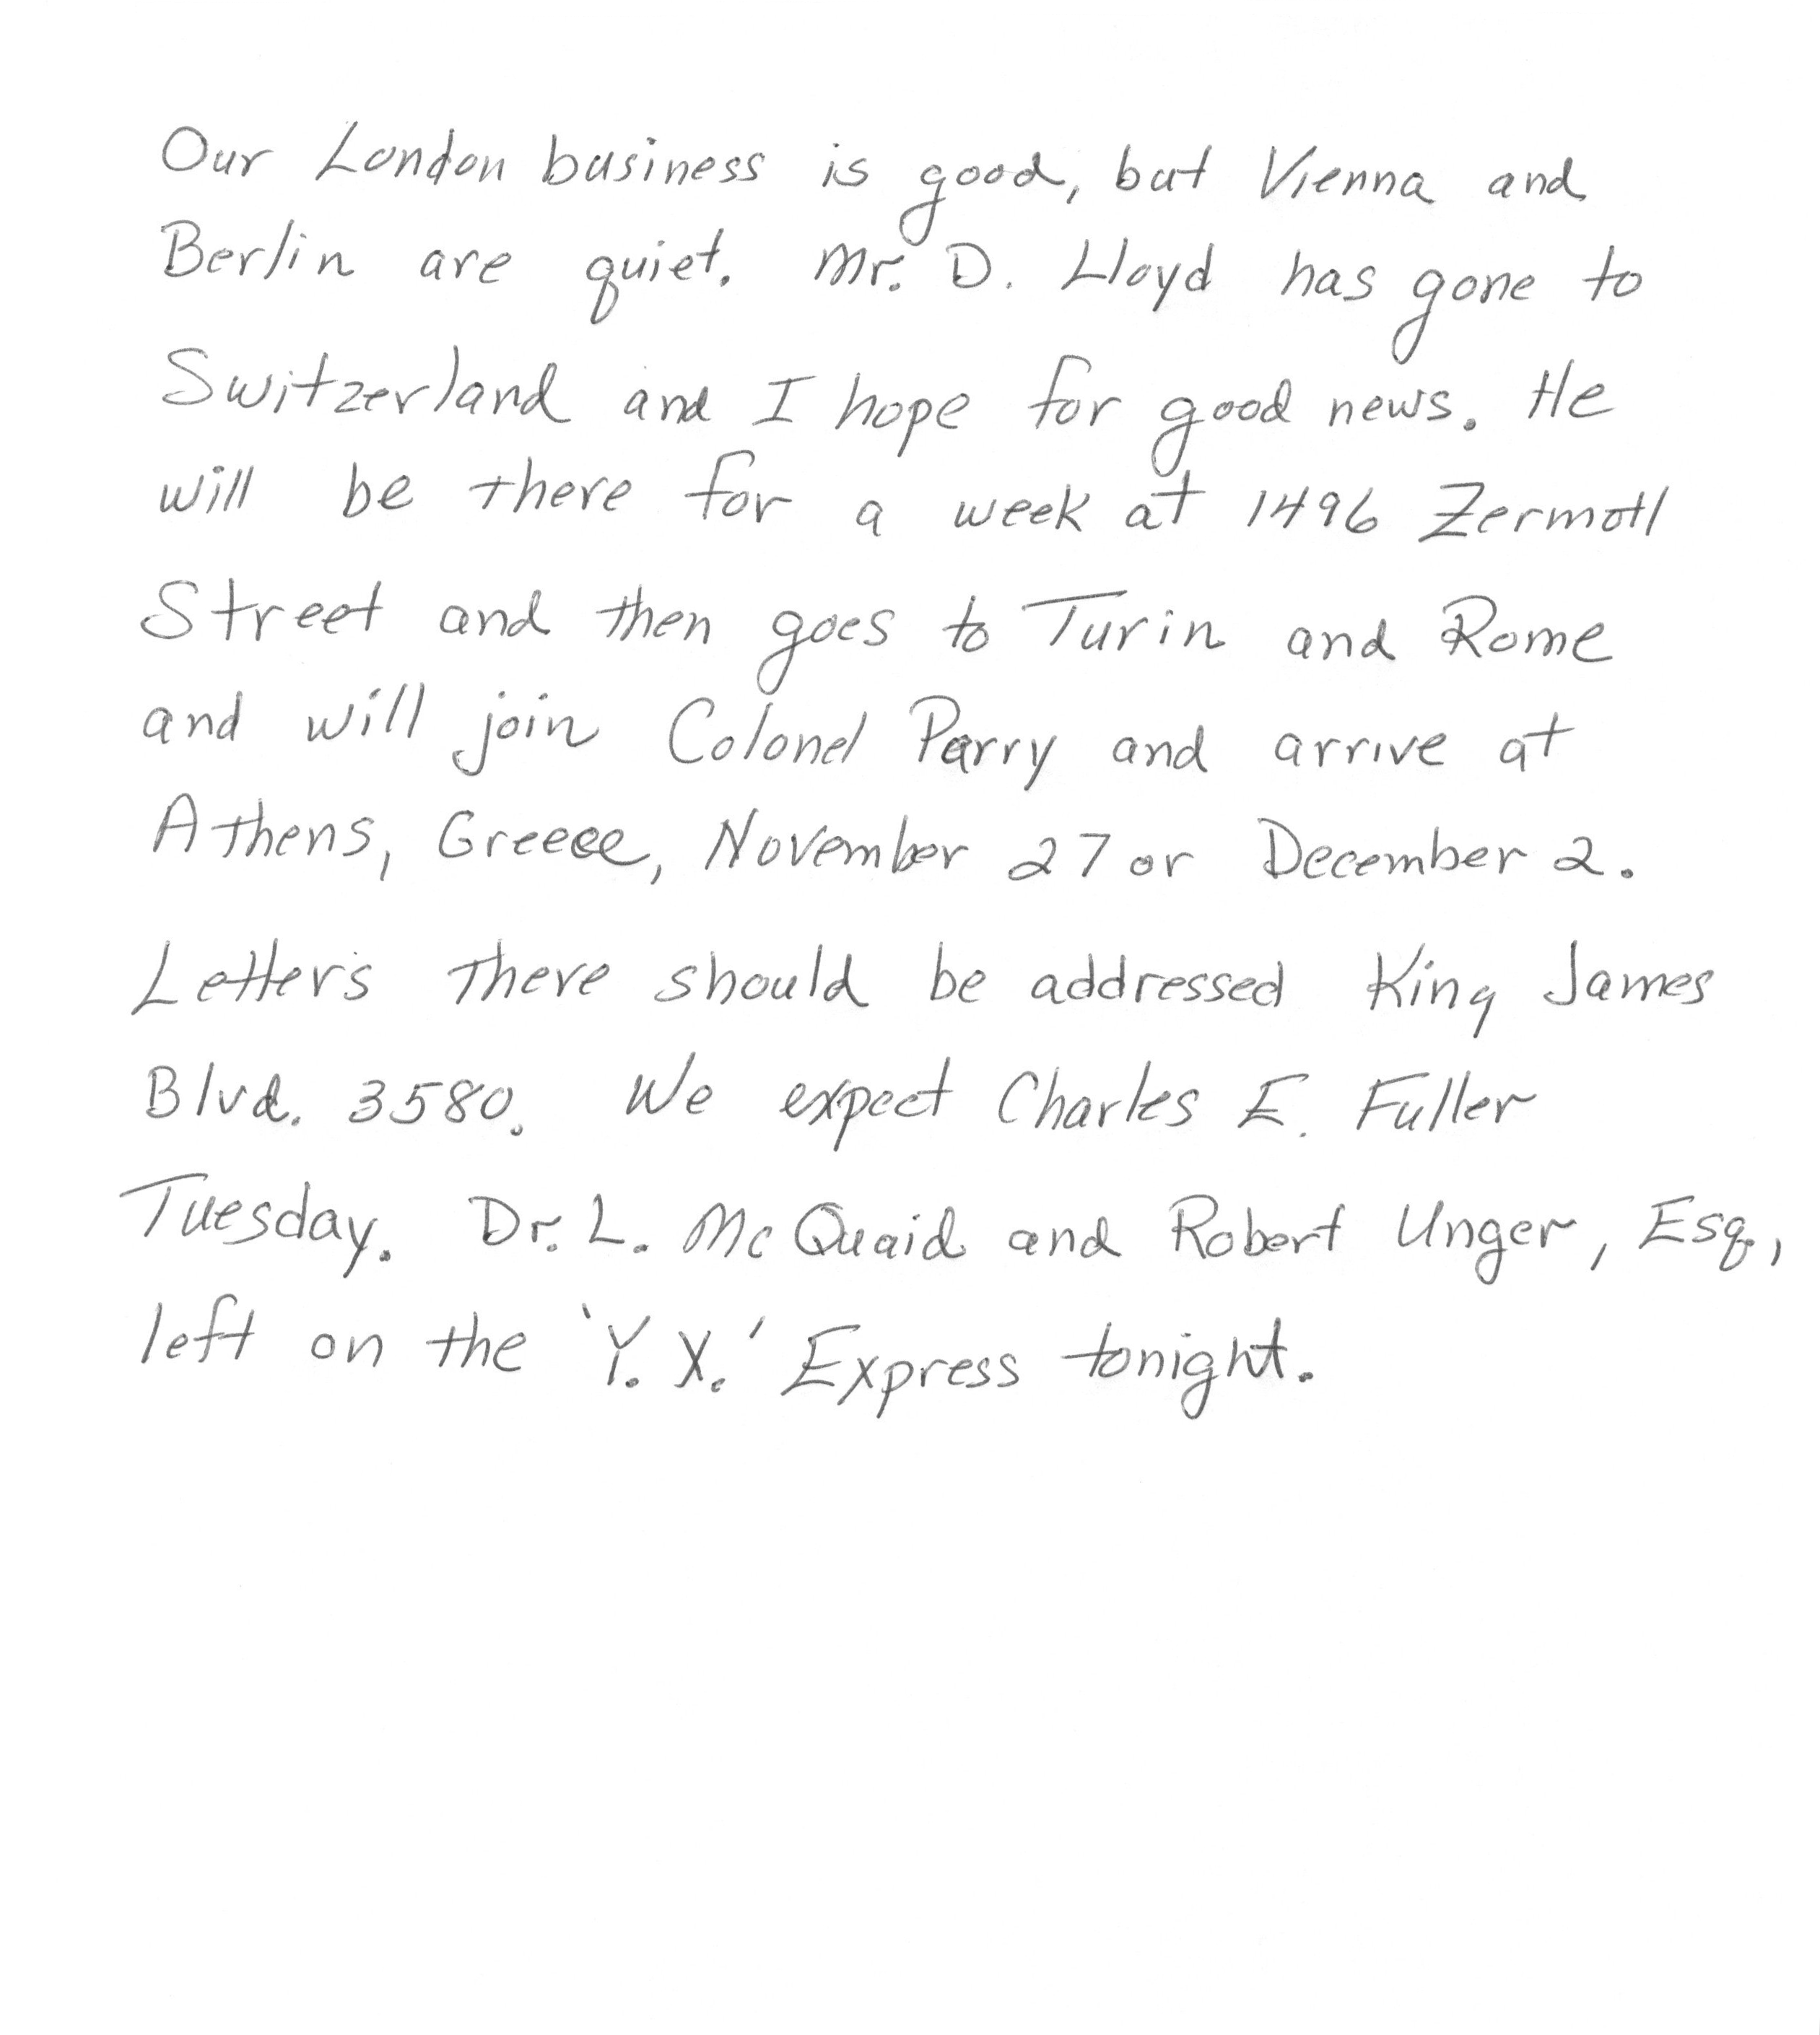 Our London business is good, but Vienna and
Berlin are quiet. Mr. D. Lloyd has gone to
Switzerland and I hope for good news. He
will be there for a week at 1496 Zermott
Street and then goes to Turin and Rome
and will join Colonel Parry and arrive at
Athens, Greece, November 27 or December 2.
Letters there should be addressed King James
Blvd. 3580. We expect Charles E. Fuller
Tuesday. Dr. L. McQuaid and Robert Unger, Esq.,
left on the 'Y. X.' Express tonight.